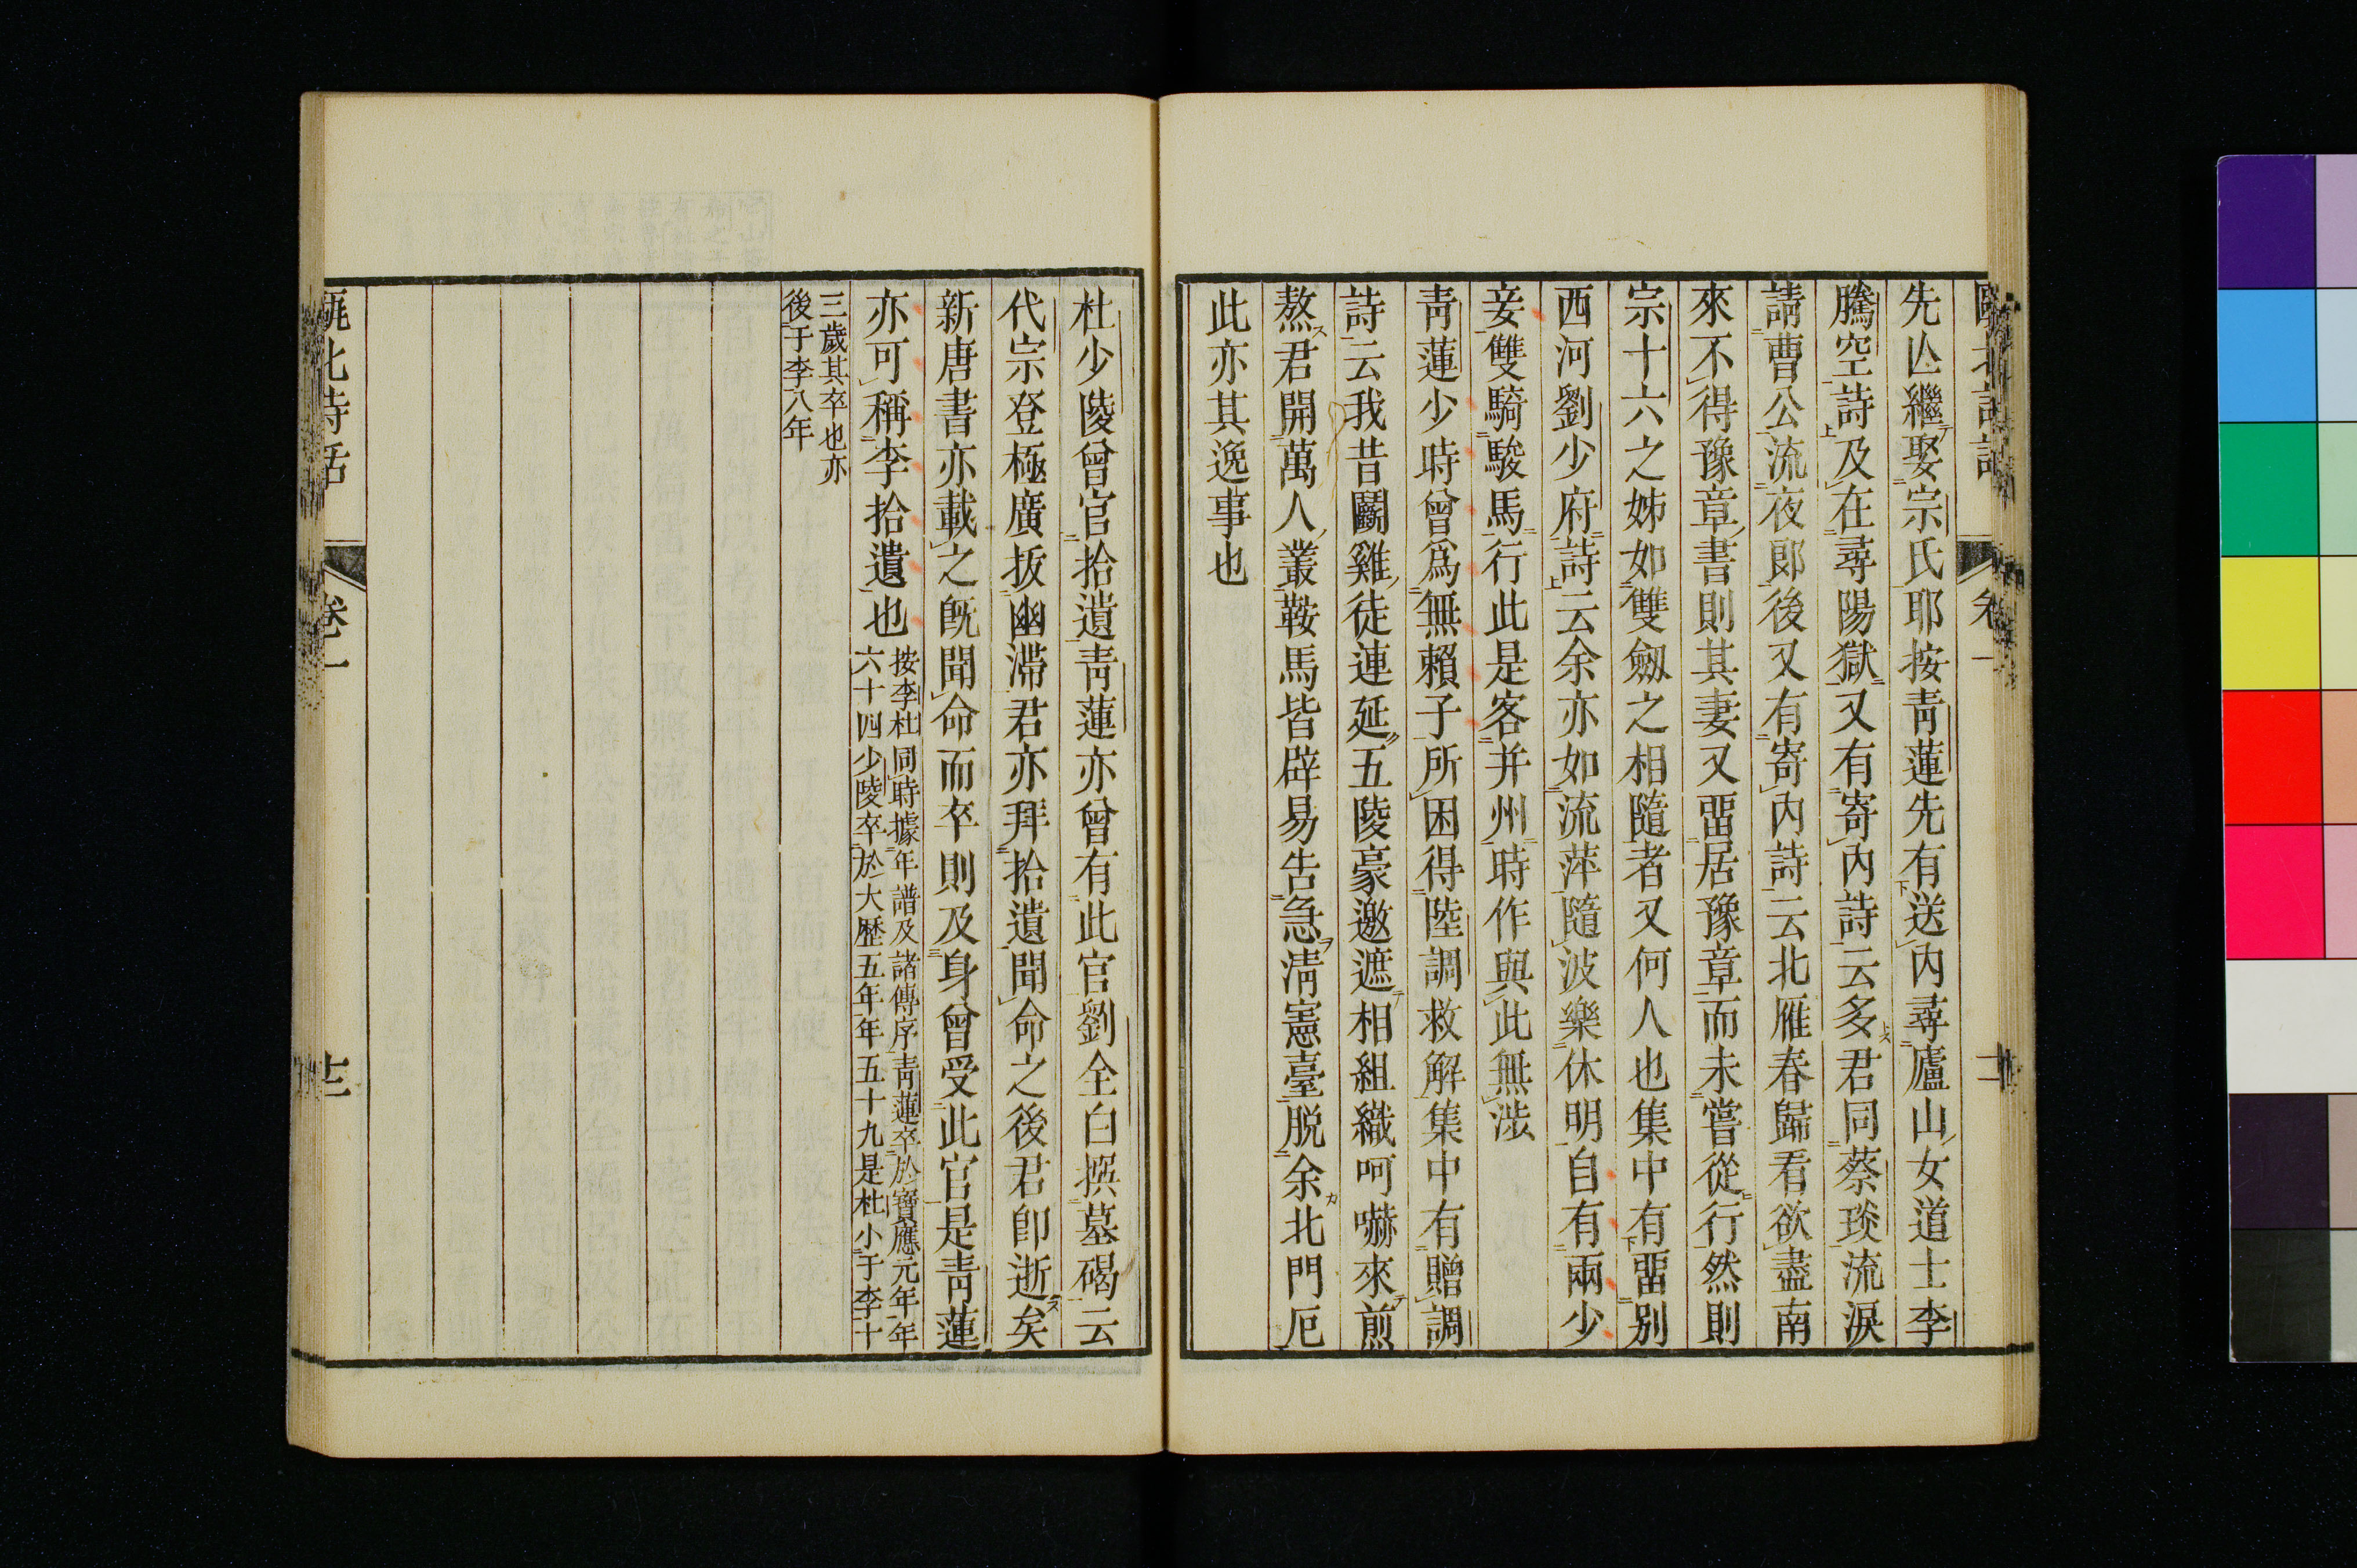 先亾繼娶宗氏耶按靑蓮先有送內尋廬山女道士李
騰空詩及在尋陽獄又有寄內詩云多君同蔡琰流淚
請曹公流夜郞後又有寄內詩云北雁春歸看欲盡南
來不得豫章書則其妻又畱居豫章而未嘗從行然則
宗十六之姊如雙劔之相隨者又何人也集中有畱別
西河劉少府詩云余亦如流萍隨波樂休明自有兩少
妾雙騎駿馬行此是客并州時作與此無涉
靑蓮少時曾爲無賴子所困得陸調救解集中有贈調
詩云我昔鬭雞徒連延五陵豪邀遮相組織呵嚇來煎
熬君開萬人叢鞍馬皆辟易告急淸憲臺脫余北門厄
此亦其逸事也
杜少陵曾官拾遺靑蓮亦曾有此官劉全白撰墓碣云
代宗登極廣拔幽滯君亦拜拾遺聞命之後君卽逝矣
新唐書亦載之旣聞命而卒則及身曾受此官是靑蓮
亦可稱李拾遺也
按李杜同時據年譜及諸傳序靑蓮卒於寶應元年年
六十四少陵卒於大歷五年年五十九是杜小于李十
三歲其卒也亦
後于李八年
甌北詩話 卷一 十二